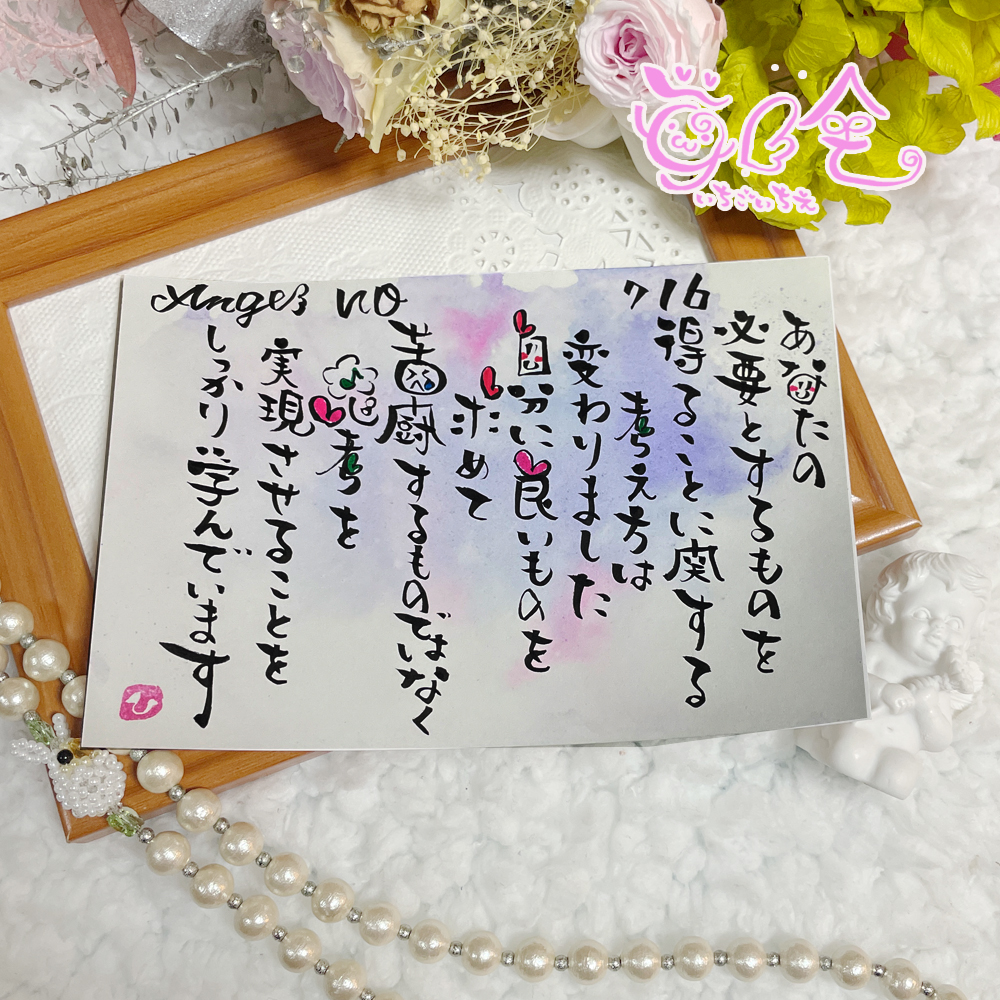 Angel NO 716
あなたの
必要とするものを
得ることに関する
考え方は
変わりました
自分に良いものを
求めて
苦闘するものではなく
思考を
実現させることを
しっかり学んでいます
いちごいちえ